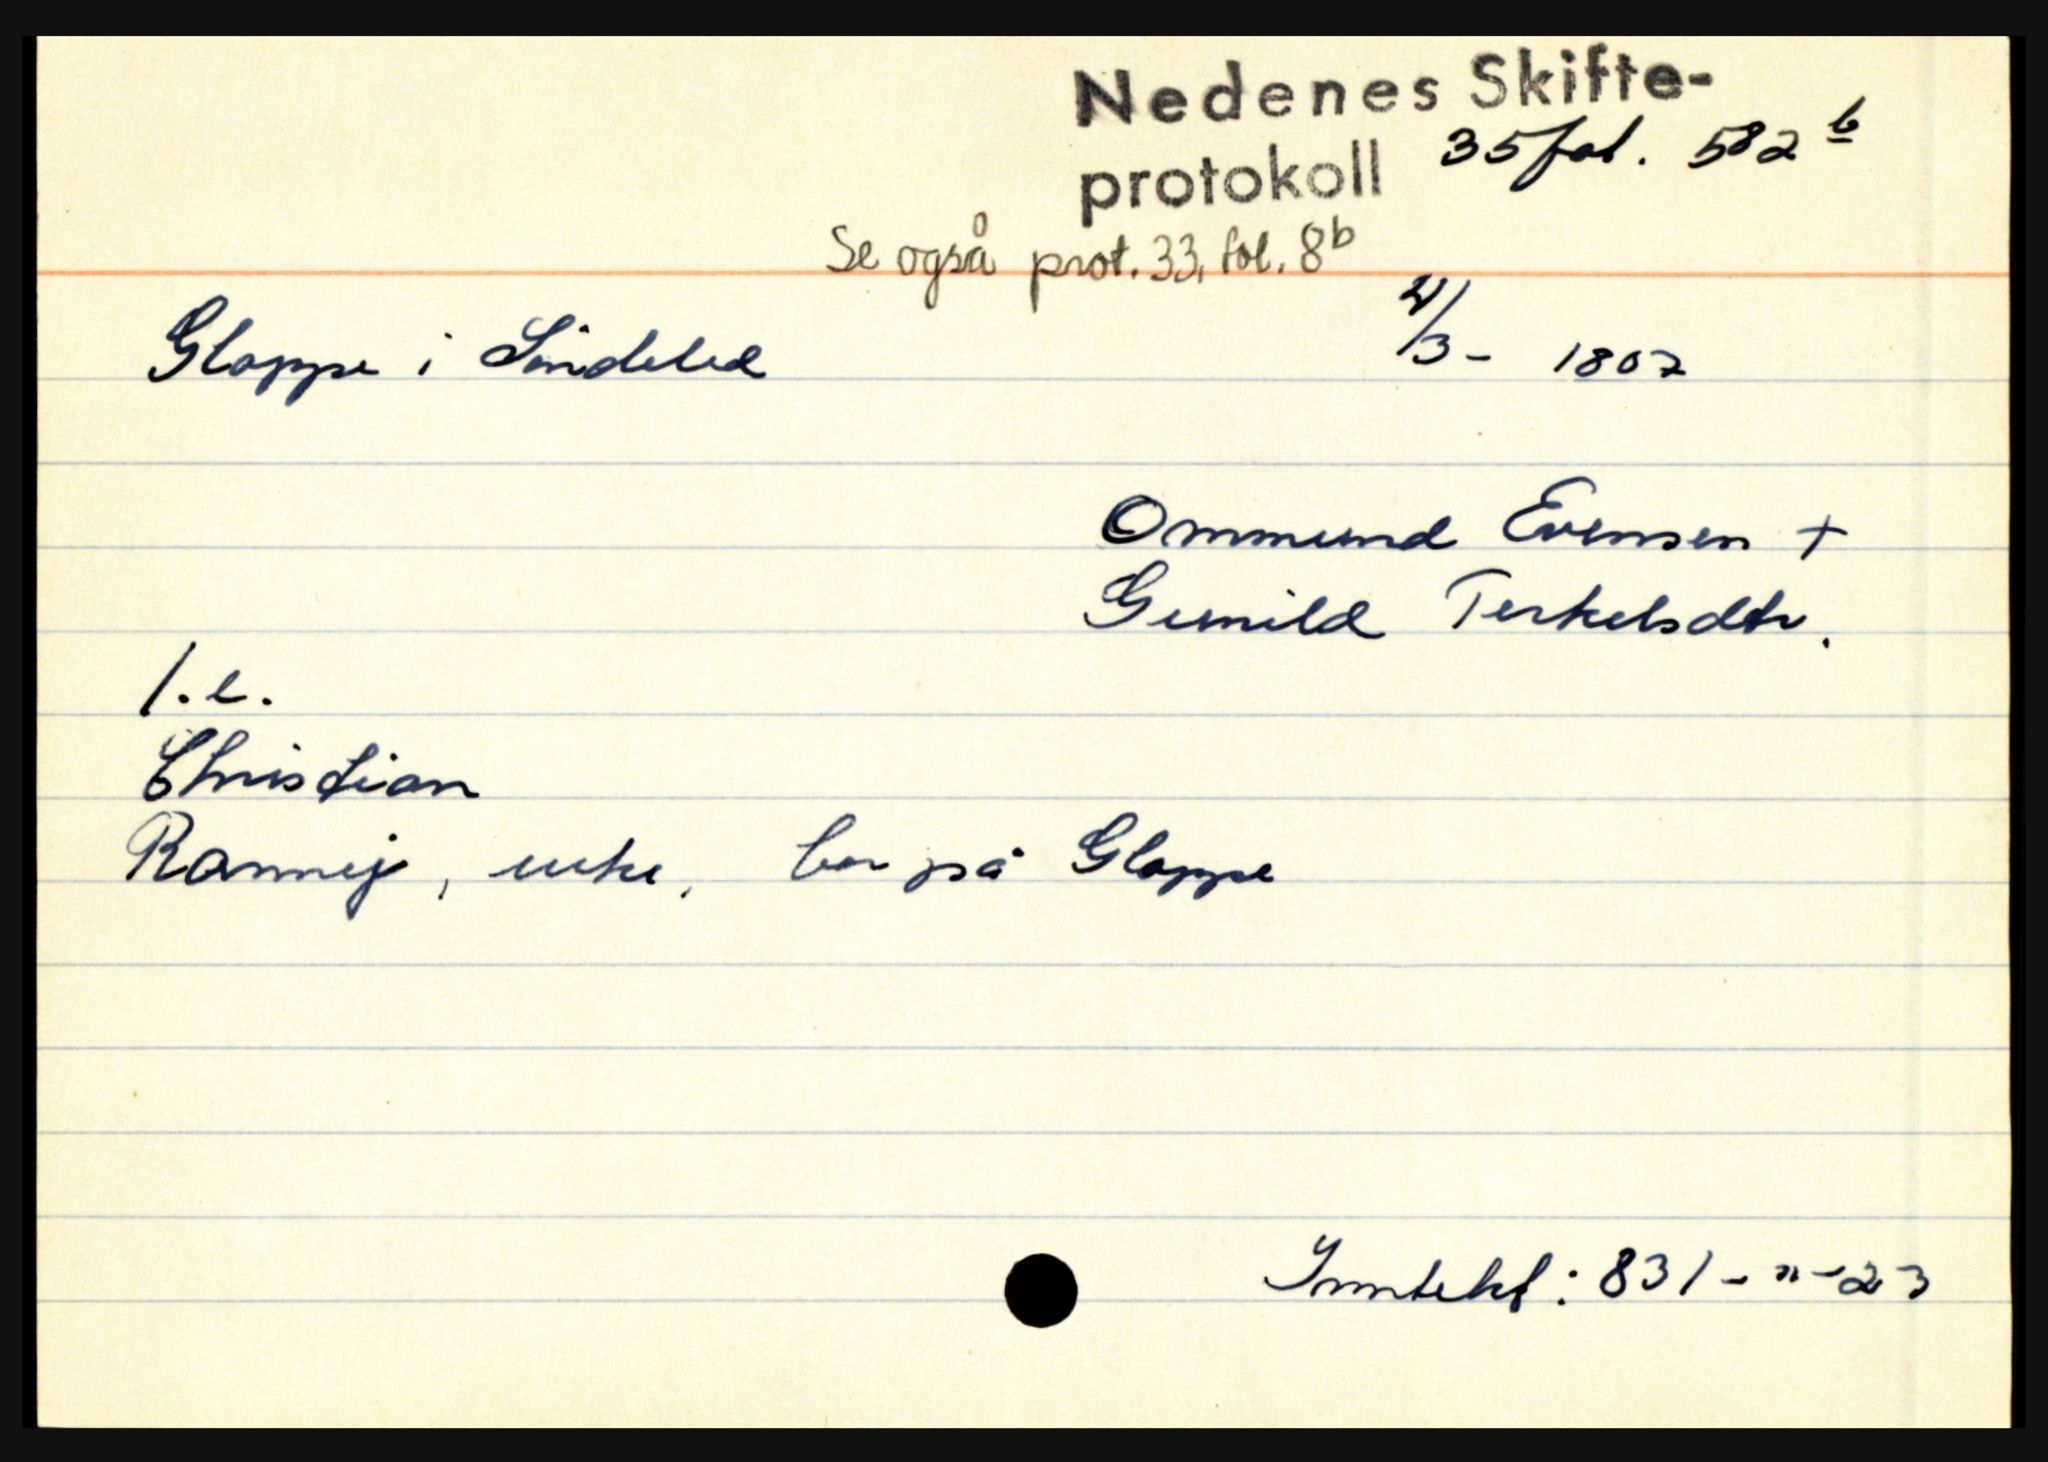 Nedenes Skifte-
protokoll 35 fol. 582 b
Se også prot. 33, fol. 8b
Gloppe i Söndeled 3- 1807
Ommund Evensen +
Gunild Terkelsdtr.
1.e.
Christian
Rannej, enke, bor på Gloppe
Inntekt: 831-"-23